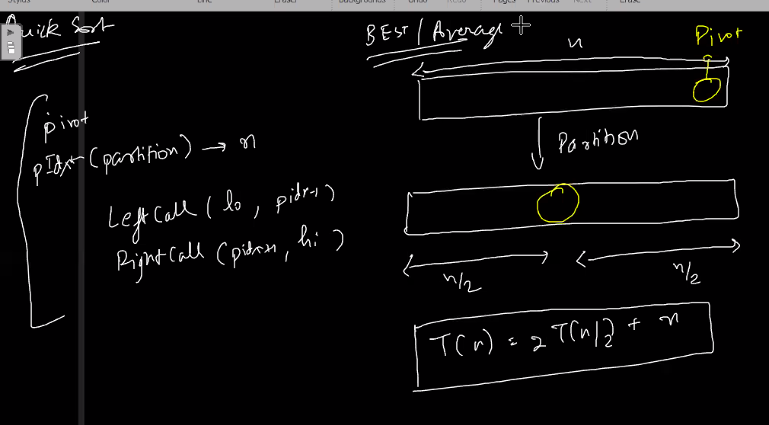 Color
Line
Eraser
Backgrounds
Undo
Redo
Pages
Previous
Next
Eraser
Quick Sort
pivot
pIdx (partition) → n
LeftCall ( lo , pidx-1 )
RightCall ( pidx+1 , hi )
BEST / Average
n
Pivot
Partition
n/2
n/2
T(n) = 2 T(n/2) + n